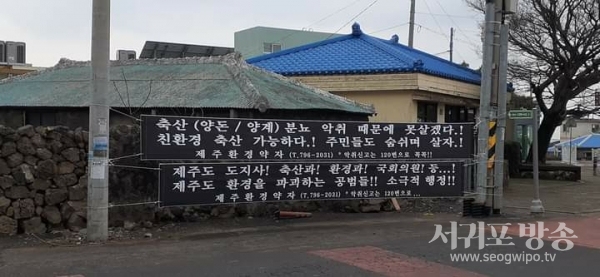 축산 (양돈 / 양계) 분뇨 악취 때문에 못살겠다.!
친환경 축산 가능하다.! 주민들도 숨쉬며 살자.!
제주환경약자 (T.798-2031) * 악취신고는 120번으로 꼭꼭!!
제주도 도지사! 축산과! 환경과! 국회의원! 등...!
제주도 환경을 파괴하는 공범들!! 소극적 행정!!
제주환경약자 (T.798-2031) * 악취신고는 120번으로 ...
서귀포방송
www.seogwipo.tv